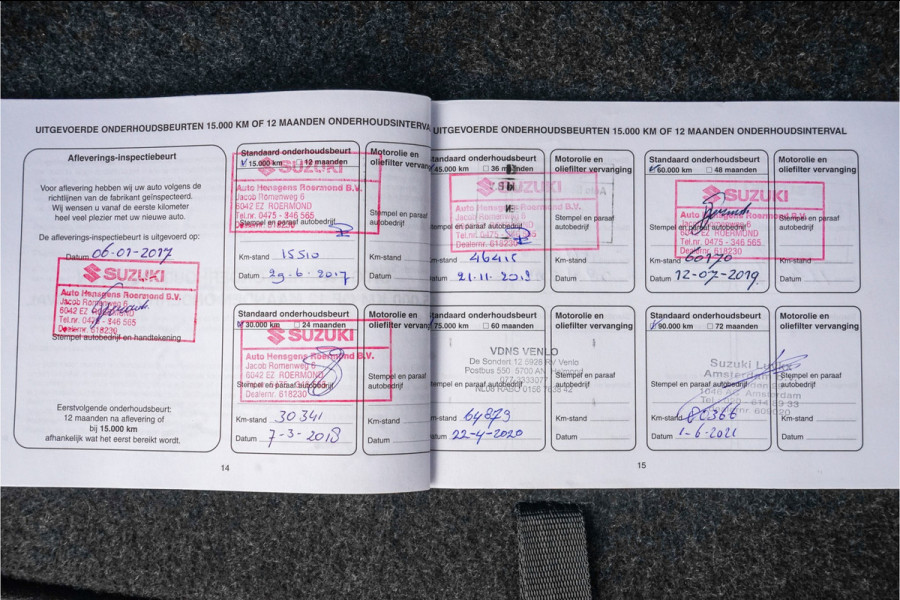 UITGEVOERDE ONDERHOUDSBEURTEN 15.000 KM OF 12 MAANDEN ONDERHOUDSINTERVAL
Afleverings-inspectiebeurt
Voor aflevering hebben wij uw auto volgens de
richtlijnen van de fabrikant geïnspecteerd.
Wij wensen u vanaf de eerste kilometer
heel veel plezier met uw nieuwe auto.
De afleverings-inspectiebeurt is uitgevoerd op:
Datum 06-01-2017
SUZUKI
Auto Hensgens Roermond B.V.
Jacob Romenweg 6
6042 EZ
Tel.nr. 0475 - 346 565
Dealernr. 618230
Stempel autobedrijf en handtekening
Eerstvolgende onderhoudsbeurt:
12 maanden na aflevering of
bij 15.000 km
afhankelijk wat het eerst bereikt wordt.
Standaard onderhoudsbeurt
15.000 km 12 maanden
SUZUKI
Auto Hensgens Roermond B.V.
Jacob Romenweg 6
6042 EZ ROERMOND
Tel.nr. 0475 - 346 565
Stempel en paraaf autobedrijf
Dealernr. 618230
Km-stand 15510
Datum 29-6-2017
Motorolie en
oliefilter vervan
Stempel en paraaf
autobedrijf
Km-stand
Datum
Standaard onderhoudsbeurt
30.000 km 24 maanden
SUZUKI
Auto Hensgens Roermond B.V.
Jacob Romenweg 6
6042 EZ ROERMOND
Stempel en paraaf autobedrijf
Dealernr. 618230
Km-stand 30341
Datum 7-3-2018
Motorolie en
oliefilter vervan
Stempel en paraaf
autobedrijf
Km-stand
Datum
14
UITGEVOERDE ONDERHOUDSBEURTEN 15.000 KM OF 12 MAANDEN ONDERHOUDSINTERVAL
Standaard onderhoudsbeurt
45.000 km 36 maanden
SUZUKI
Auto Hensgens Roermond B.V.
Jacob Romenweg 6
6042 EZ ROERMOND
Stempel en paraaf autobedrijf
Dealernr. 618230
Km-stand 46415
Datum 21-11-2018
Motorolie en
oliefilter vervanging
Stempel en paraaf
autobedrijf
Km-stand
Datum
Standaard onderhoudsbeurt
60.000 km 48 maanden
SUZUKI
Auto Hensgens Roermond B.V.
Jacob Romenweg 6
6042 EZ ROERMOND
Stempel en paraaf autobedrijf
Tel.nr. 0475 - 346 565
Dealernr. 618230
Km-stand 60170
Datum 12-07-2019
Motorolie en
oliefilter vervanging
Stempel en paraaf
autobedrijf
Km-stand
Datum
Standaard onderhoudsbeurt
75.000 km 60 maanden
VDNS VENLO
De Sondert 12 5928 RV Venlo
Postbus 550 5700 AN Helmond
Stempel en paraaf autobedrijf
Km-stand 64879
Datum 22-4-2020
Motorolie en
oliefilter vervanging
Stempel en paraaf
autobedrijf
Km-stand
Datum
Standaard onderhoudsbeurt
90.000 km 72 maanden
Suzuki
Amsterdam
Stempel en paraaf autobedrijf
Amsterdam
Km-stand 82366
Datum 1-6-2021
Motorolie en
oliefilter vervanging
Stempel en paraaf
autobedrijf
Km-stand
Datum
15